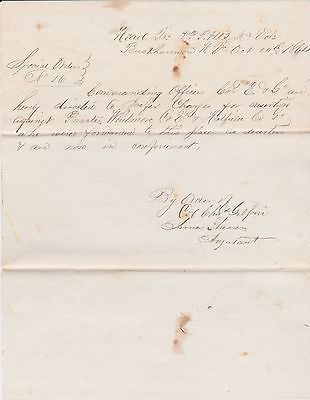 Head Qrs 3rd P.H.B. Md Vols
Buckhannon W. Va Oct 14th 1864
Special Order
No 16
Commanding Officers Co's E & G are
hereby directed to prefer Charges for desertion
against Privates Whitmore Co E & Co G
who were forwarded to this place as deserters
& are now in confinement.
By Order of
Col Chas Gilpin
James Shearer
Adjutant